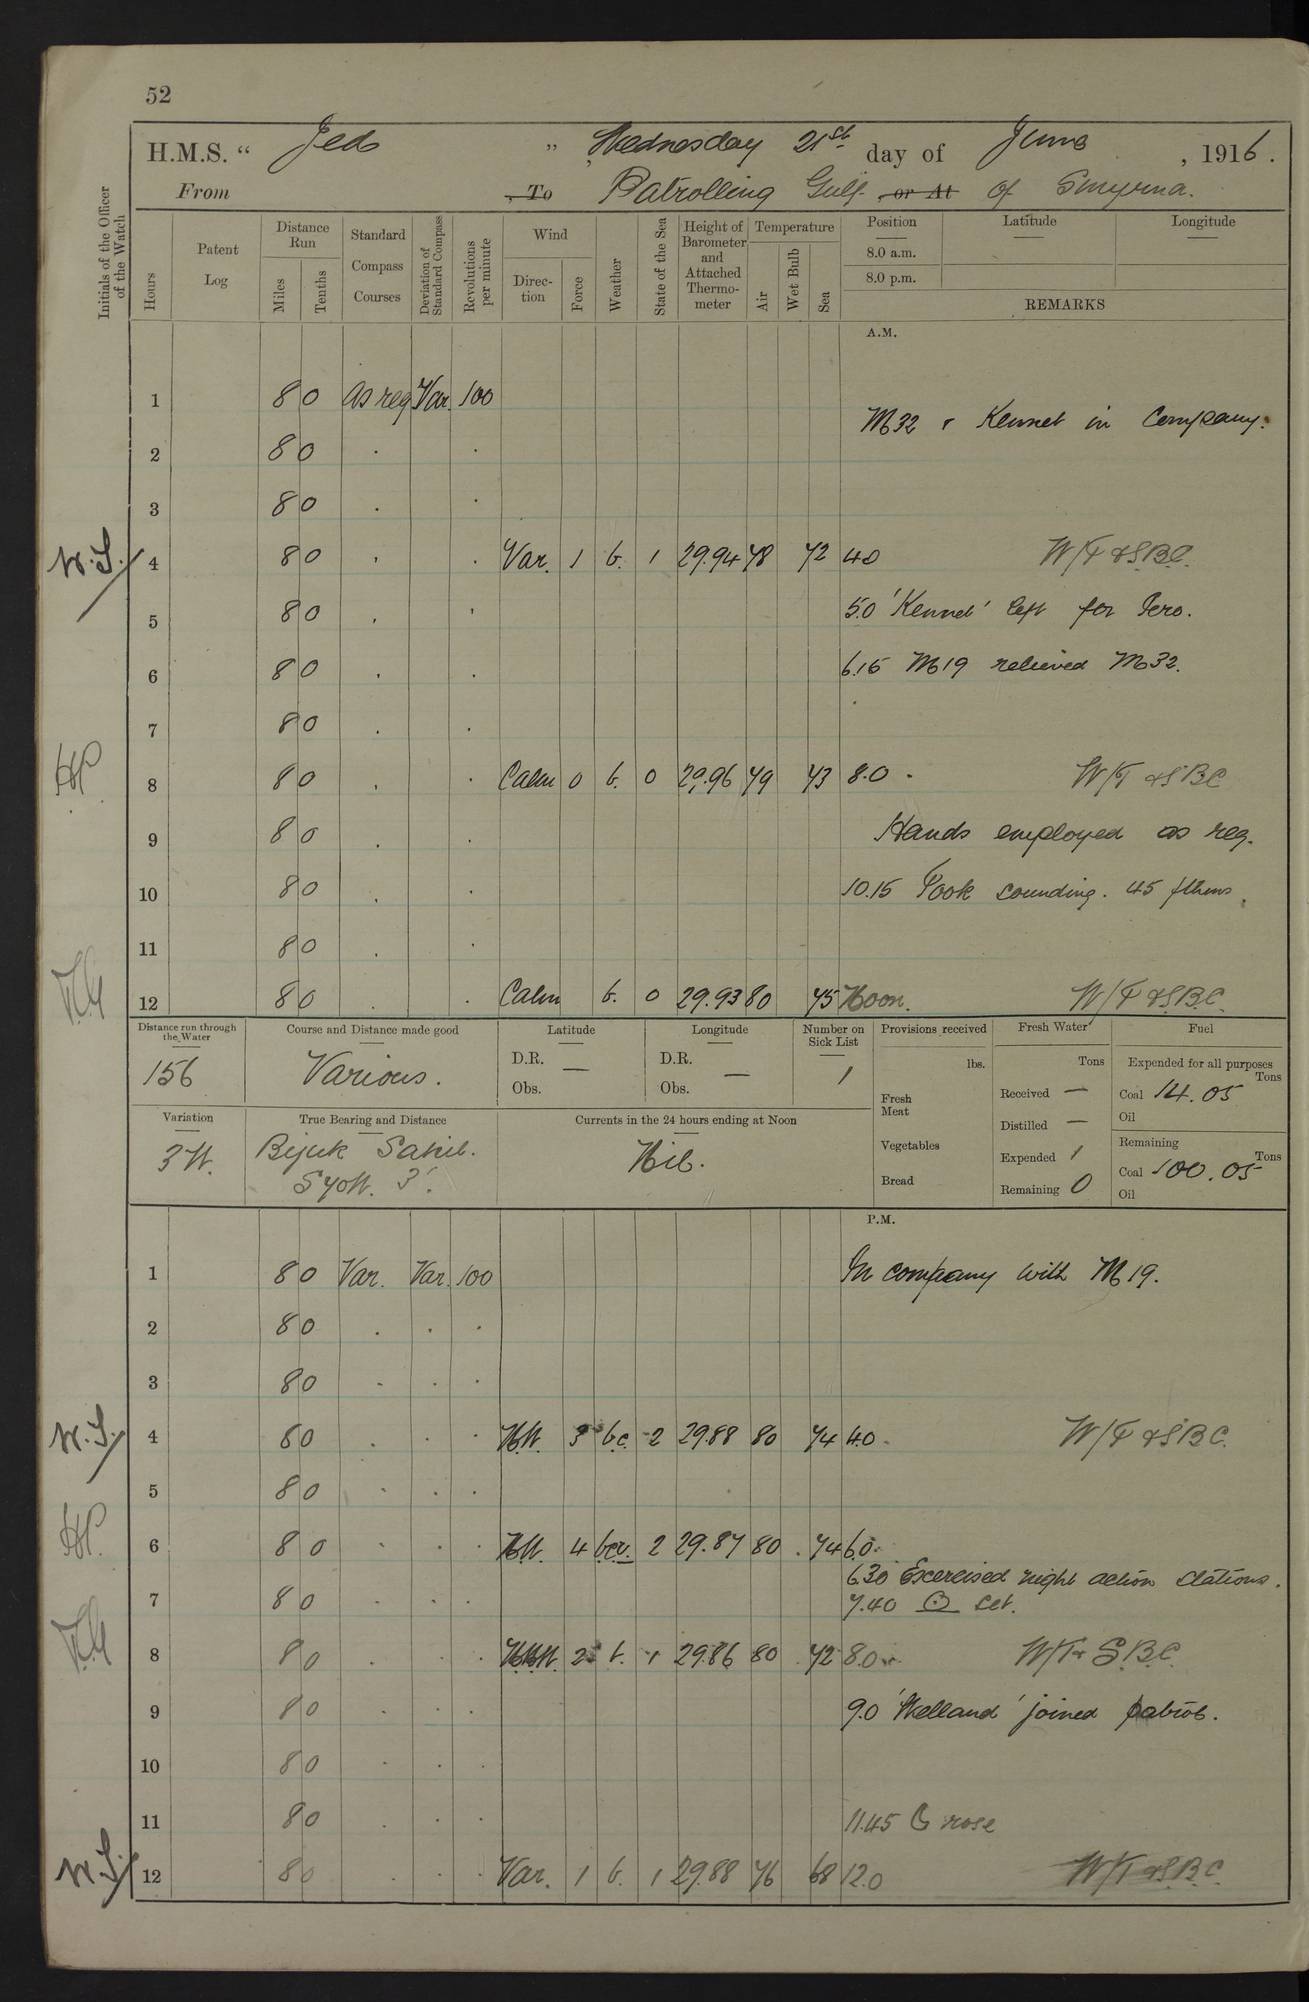 52
H.M.S. “ Jed ” Wednesday 21st day of June , 1916.
From , To Patrolling Gulf , or At of Smyrna.
Initials of the Officer of the Watch
Hours
Patent Log
Distance Run
Miles
Tenths
Standard Compass Courses
Deviation of Standard Compass
Revolutions per minute
Wind
Direction
Force
Weather
State of the Sea
Height of Barometer and Attached Thermometer
Temperature
Air
Wet Bulb
Sea
Position
8.0 a.m.
8.0 p.m.
Latitude
Longitude
REMARKS
A.M.
1 8 0 As req Var. 100
M32 & Kennet in Company.
2 8 0 . .
3 8 0 . .
W.S. 4 8 0 . . Var. 1 b. 1 29.94 78 72 4.0 W/T & S.B.C.
5 8 0 . . 5.0 'Kennet' left for Iero.
6 8 0 . . 6.15 M19 relieved M32.
7 8 0 . .
HP 8 8 0 . . Calm 0 b. 0 29.96 79 73 8.0 . W/T & SBC
9 8 0 . . Hands employed as req.
10 8 0 . . 10.15 Took sounding. 45 fthms.
11 8 0 . .
12 8 0 . . Calm b. 0 29.93 80 75 Noon. W/T & S.B.C.
Distance run through the Water
156
Course and Distance made good
Various.
Latitude
D.R. —
Obs.
Longitude
D.R. —
Obs.
Number on Sick List
1
Provisions received
lbs.
Fresh Meat
Vegetables
Bread
Fresh Water
Tons
Received —
Distilled —
Expended 1
Remaining 0
Fuel
Expended for all purposes
Tons
Coal 14.05
Oil
Remaining
Tons
Coal 100.05
Oil
Variation
3 W.
True Bearing and Distance
Bijuk Sahib.
S 70 W. 3'.
Currents in the 24 hours ending at Noon
Nil.
P.M.
1 8 0 Var. Var. 100 In company with M19.
2 8 0 . . .
3 8 0 . . .
W.S. 4 8 0 . . . N.W. 3 b.c. 2 29.88 80 74 4.0 W/T & S.B.C.
5 8 0 . . .
HP. 6 8 0 . . . N.W. 4 bcv. 2 29.87 80 . 74 6.0.
6.30 Excercised night action stations.
7 8 0 . . . 7.40 ☉ set.
8 8 0 . . NNW. 2 b. 1 29.86 80 . 72 8.0 W/T & S.B.C.
9 8 0 . . . 9.0 'Welland' joined patrol.
10 8 0 . . .
11 8 0 . . . 11.45 ☾ rose
W.S. 12 8 0 . . . Var. 1 b. 1 29.88 76 68 12.0 W/T & S.B.C.